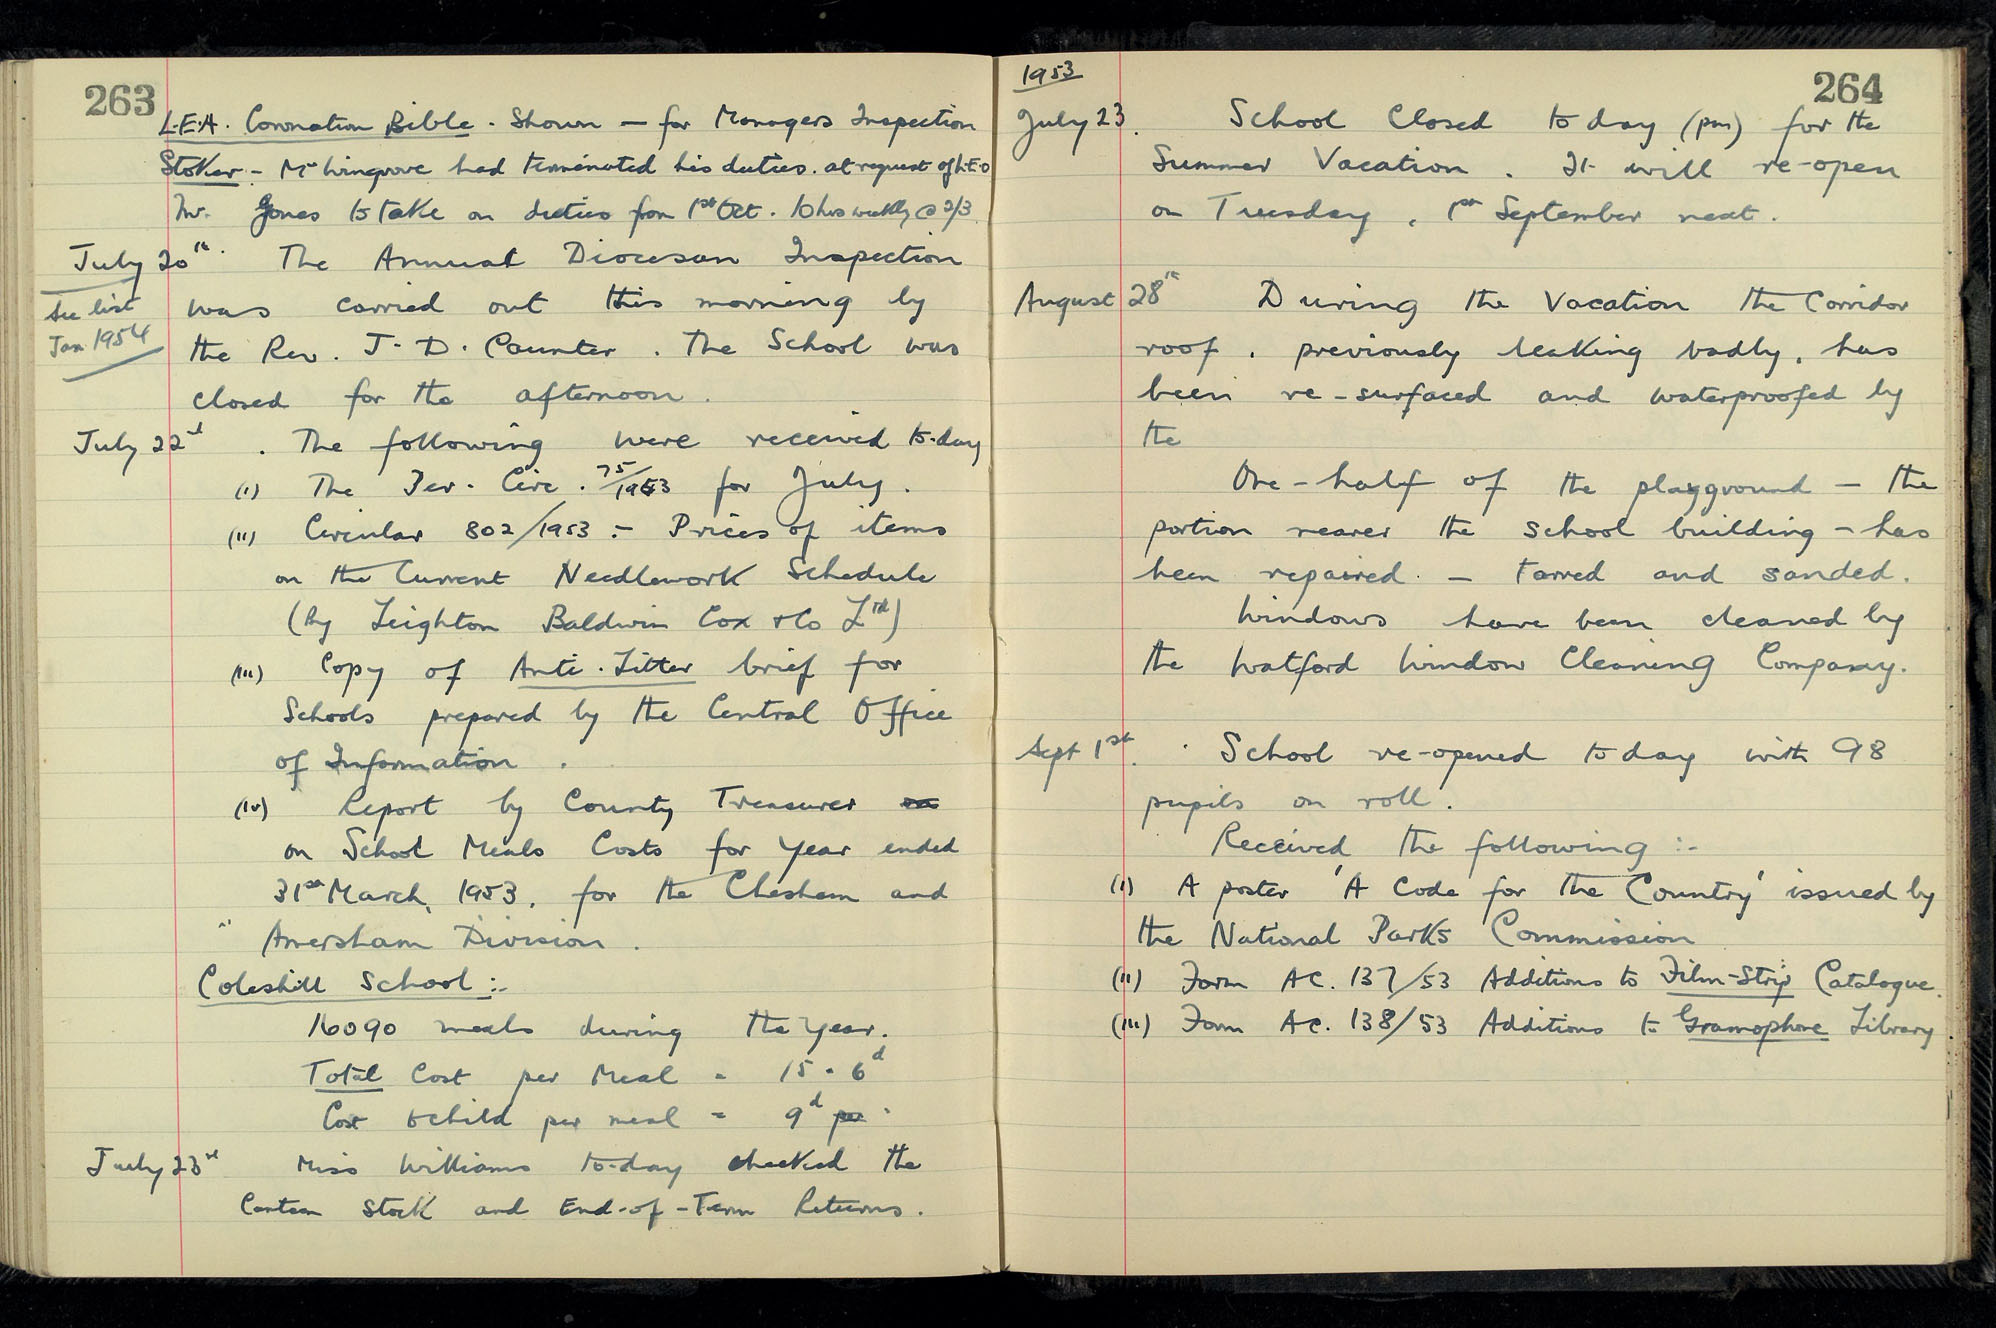 263
L.E.A. Coronation Bible - Shown - for Managers Inspection
Stoker - Mr Wingrove had terminated his duties. at request of L.E.O
Mr. Jones to take on duties from 1st Oct. 10 hrs weekly @ 2/3.
July 20th. The Annual Diocesan Inspection
See list
Jan 1954
was carried out this morning by
the Rev. J. D. Counter. The School was
closed for the afternoon.
July 22nd. The following were received to-day
(i) The Ter. Circ. 75/1953 for July.
(ii) Circular 802/1953 :- Prices of items
on the Current Needlework Schedule
(by Leighton Baldwin Cox & Co Ltd)
(iii) Copy of Anti-Litter brief for
Schools prepared by the Central Office
of Information.
(iv) Report by County Treasurer on
on School Meals Costs for Year ended
31st March, 1953, for the Chesham and
Amersham Division.
Coleshill School :-
16090 meals during the Year.
Total Cost per Meal = 15.6d
Cost to child per meal = 9d per.
July 23rd Miss Williams to-day checked the
Canteen Stock and End-of-Term Returns.
1953
264
July 23. School Closed to day (pm) for the
Summer Vacation. It will re-open
on Tuesday, 1st September next.
August 28th During the Vacation the Corridor
roof, previously leaking badly, has
been re-surfaced and waterproofed by
the
One-half of the playground - the
portion nearer the school building - has
been repaired - tarred and sanded.
Windows have been cleaned by
the Watford Window Cleaning Company.
Sept 1st. School re-opened to day with 98
pupils on roll.
Received the following :-
(i) A poster 'A Code for the Country' issued by
the National Parks Commission
(ii) Form AC. 137/53 Additions to Film-Strip Catalogue.
(iii) Form AC. 138/53 Additions to Gramophone Library